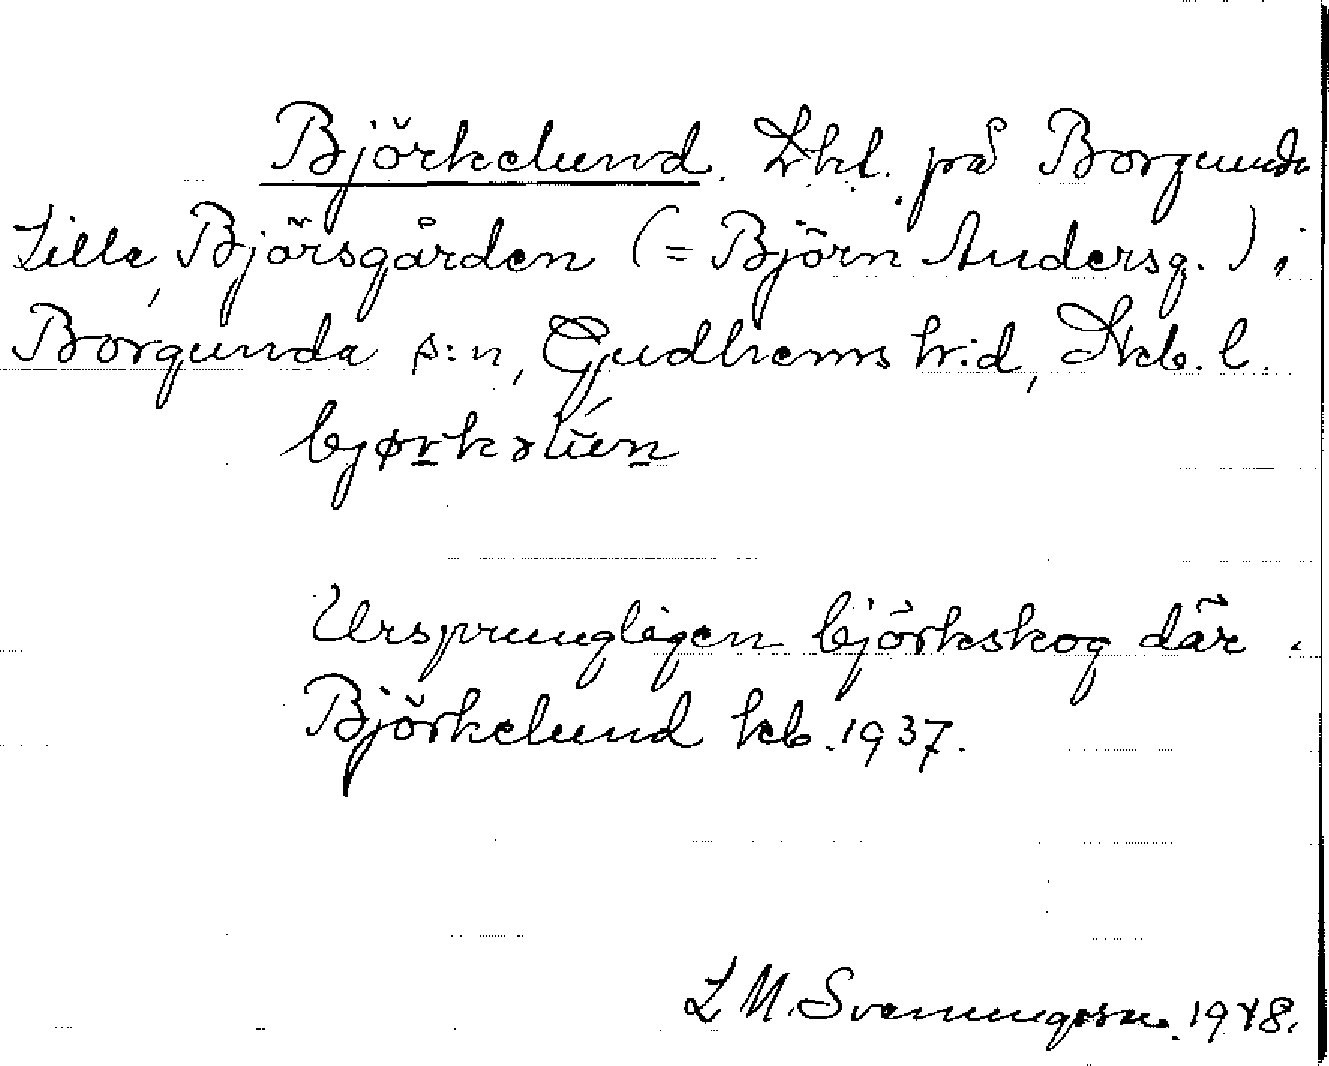 Björkelund. Lht. på Borgunda
Lilla, Björsgården (= Björn Andersg.) i
Borgunda s:n, Gudhems h:d, Skb. l.
bjørkəlun
Ursprungligen björkskog där.
Björkelund kb. 1937.
L M. Svenungsson. 1948.